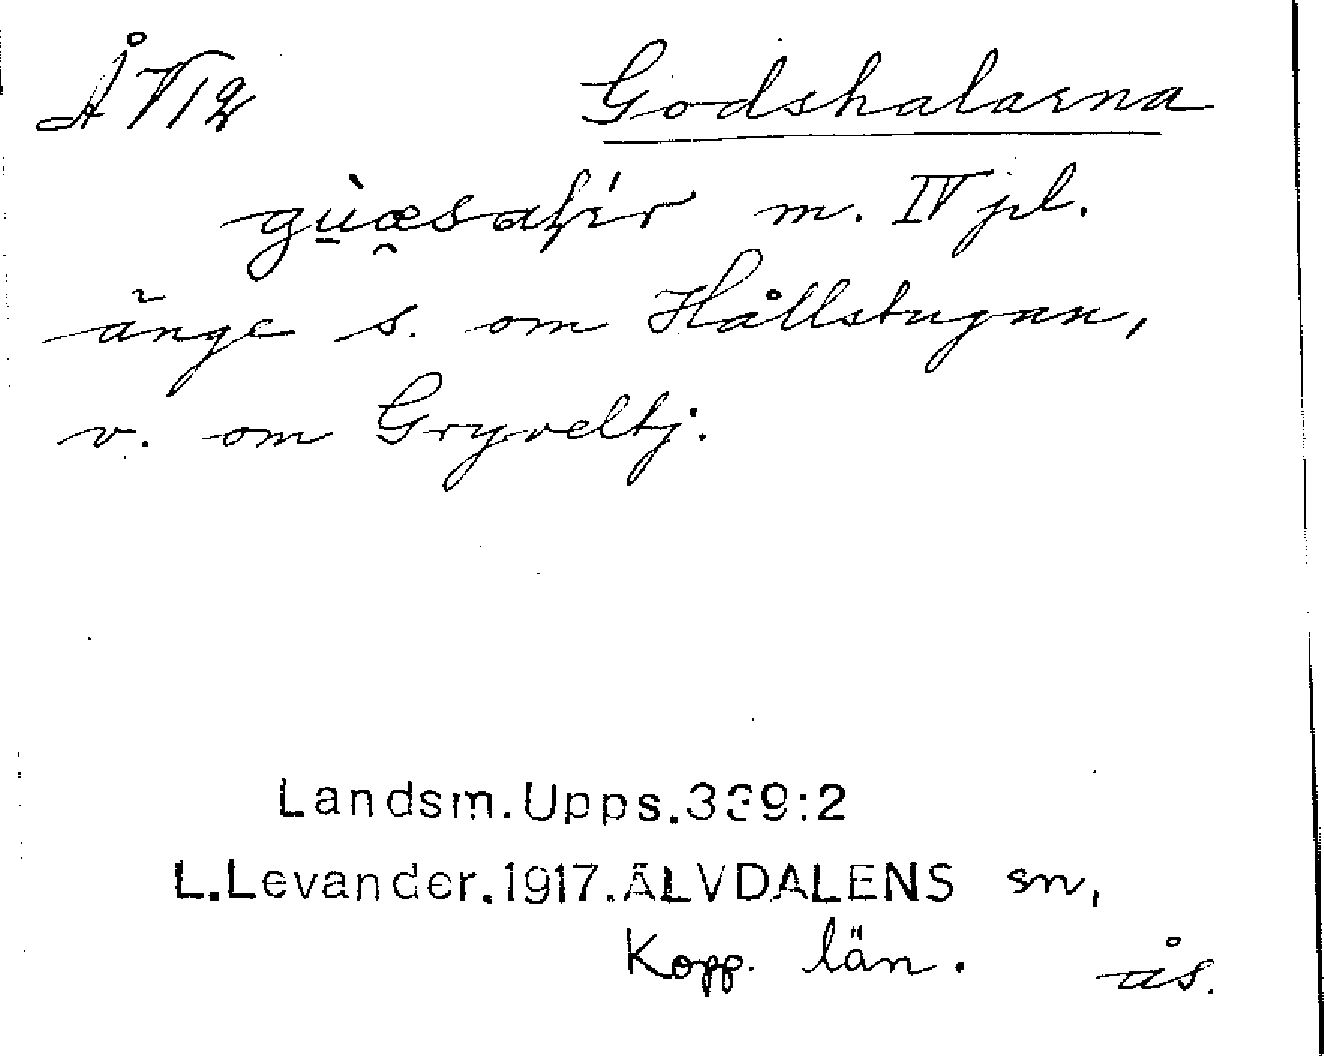 Å V 12 Godshalarna
m. IV pl.
änge s. om Hållstugan,
v. om Gryveltj.
Landsm.Upps.339:2
L.Levander.1917.ÄLVDALENS sn,
Kopp. län. ås.